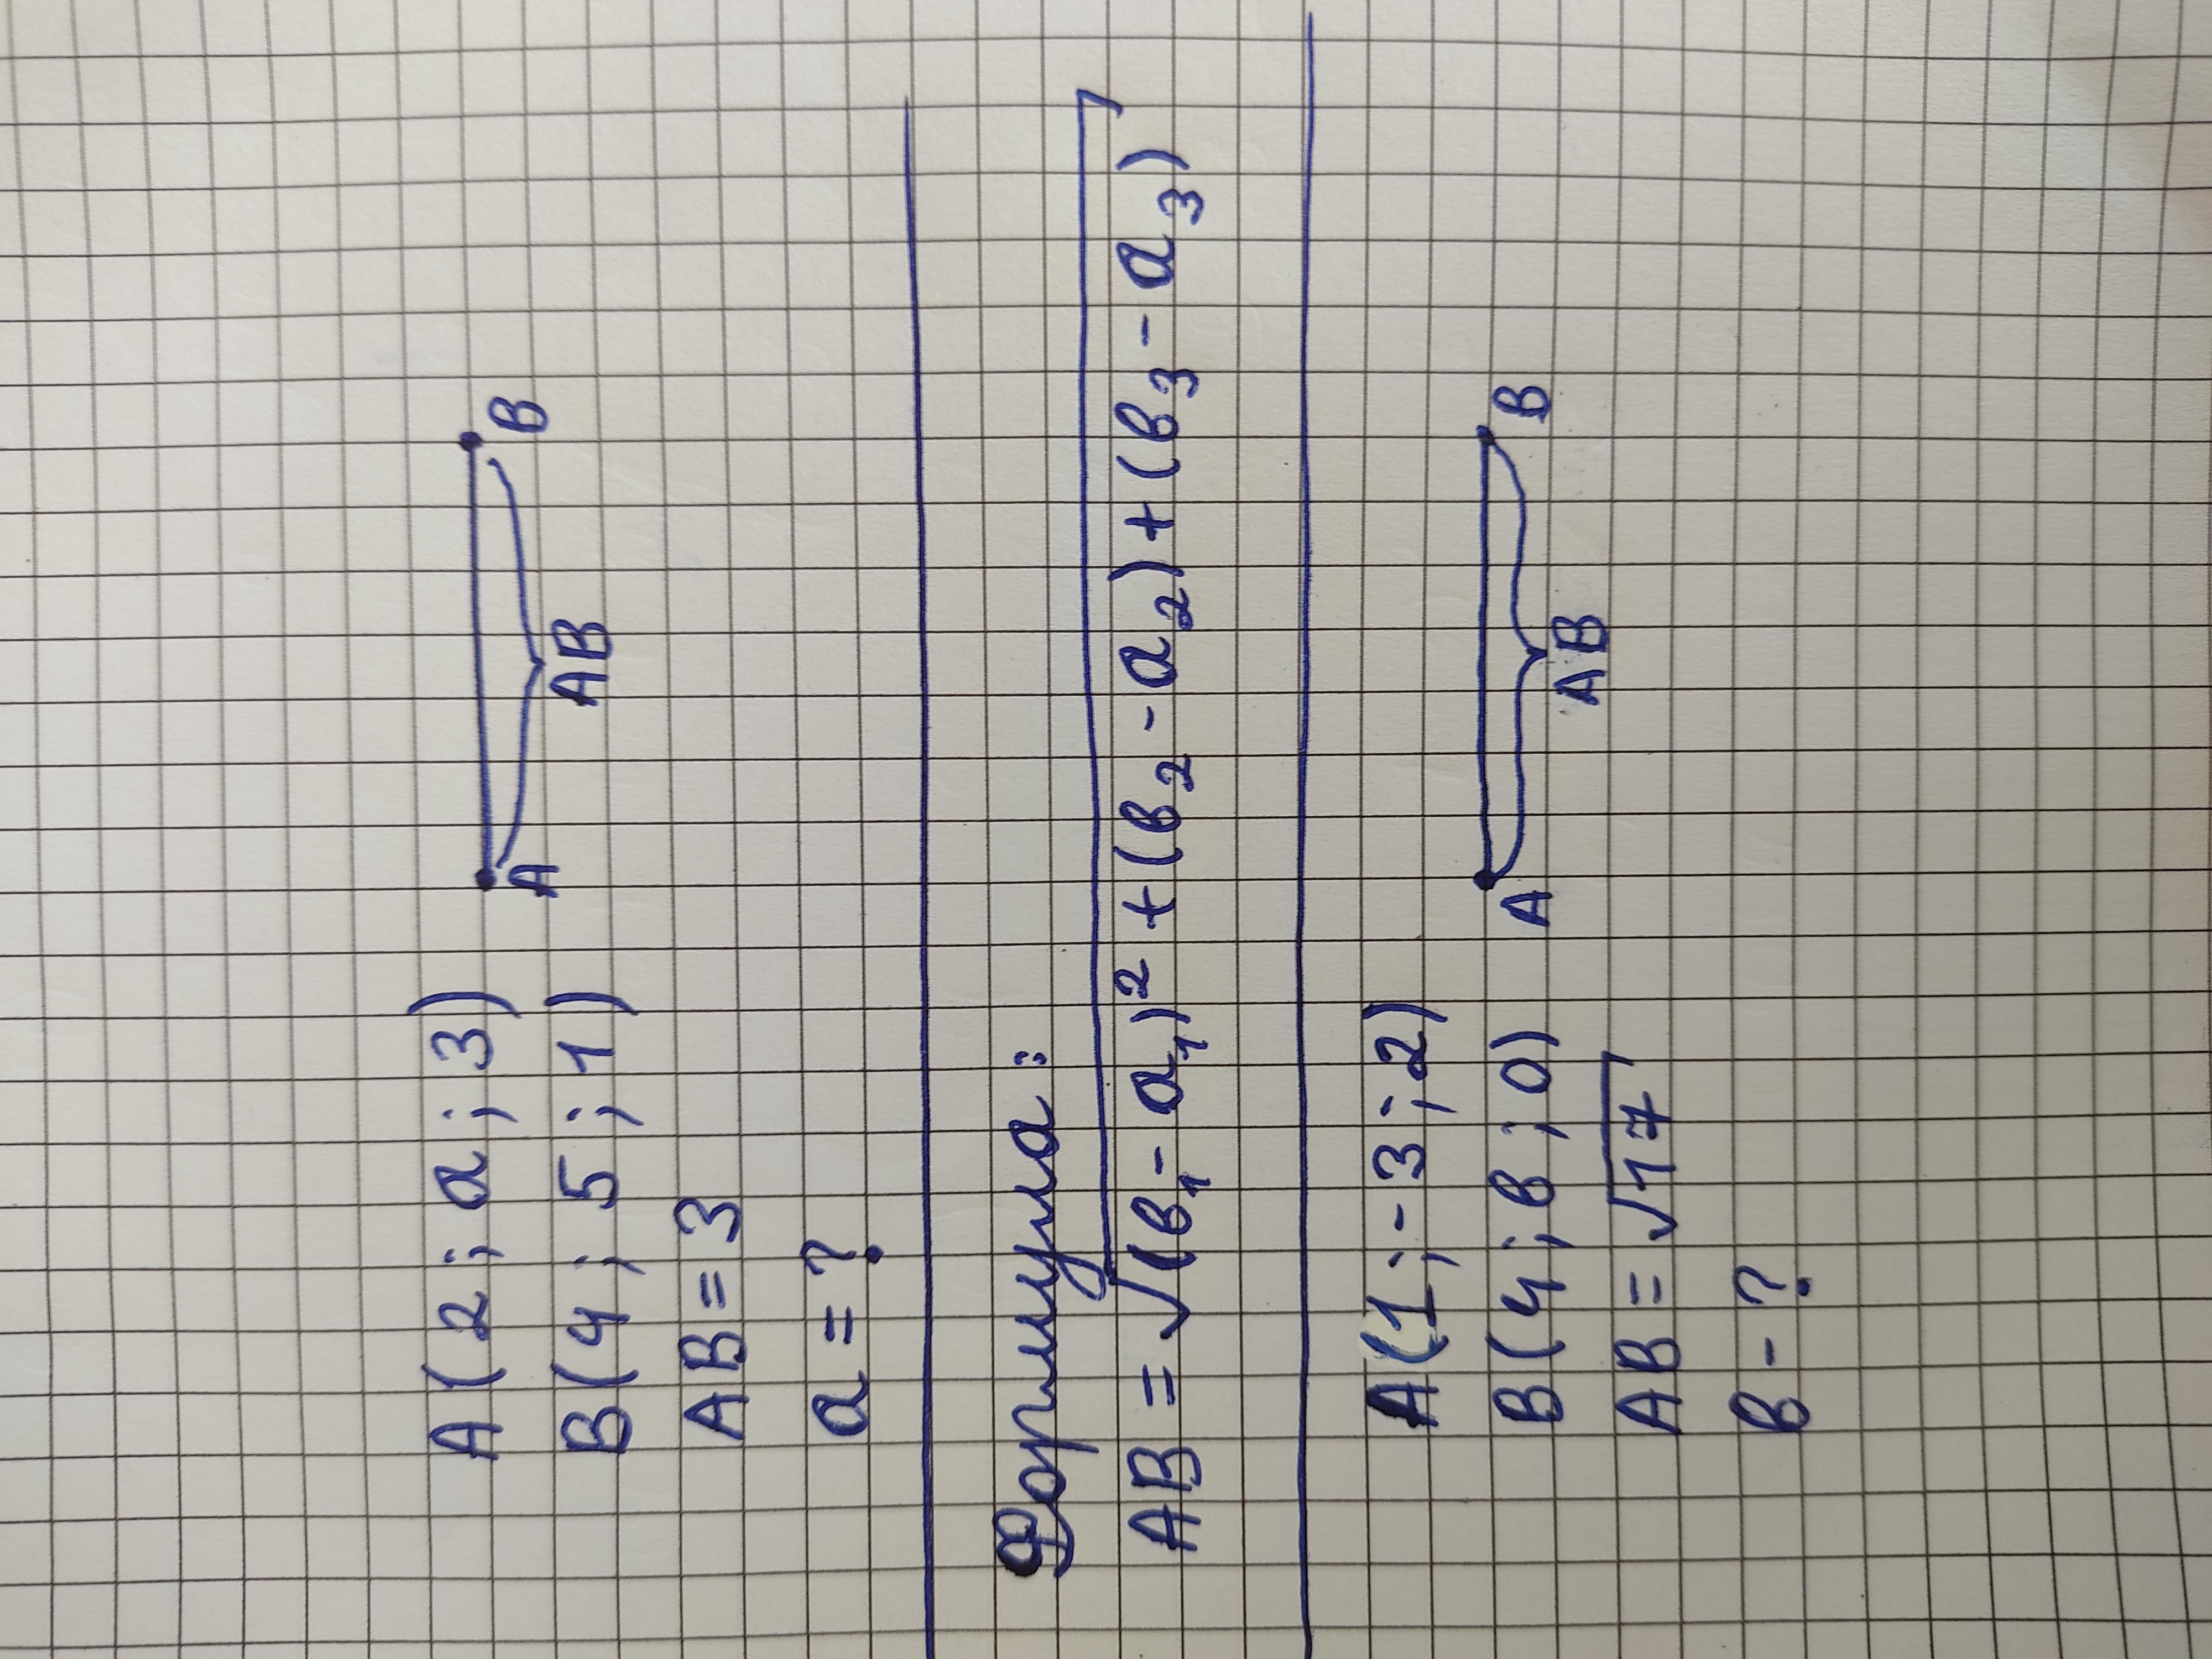 A(2; a; 3)
B(4; 5; 1)
AB = 3
a = ?
A B
AB
Формула:
AB = √(в₁ - a₁)² + (в₂ - a₂) + (в₃ - a₃)
A(1; -3; 2)
B(4; в; 0)
AB = √17
в - ?
A B
AB